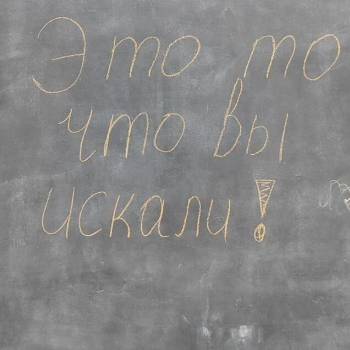 Это то
что вы
искали!